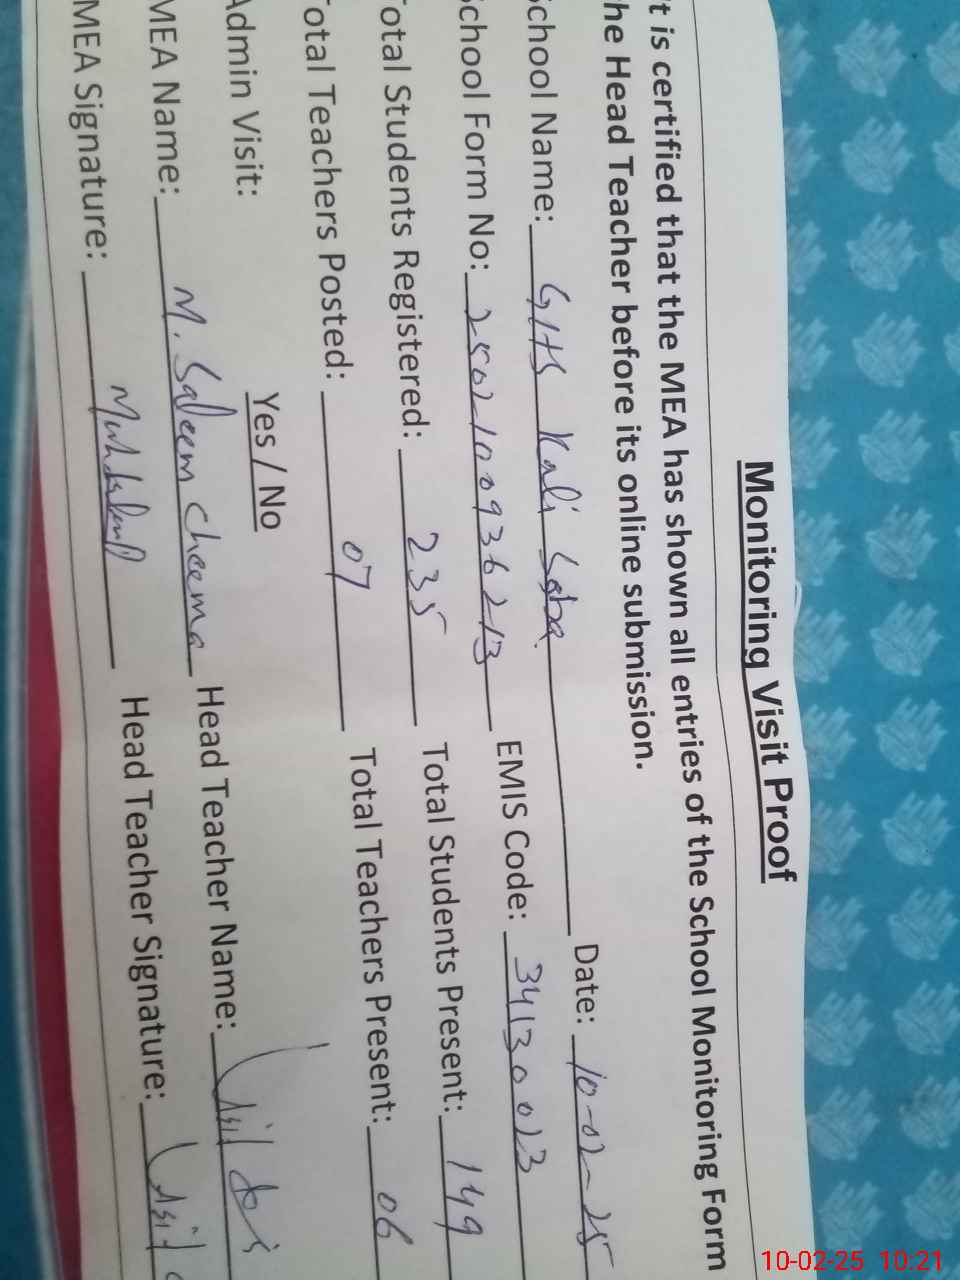 Monitoring Visit Proof
t is certified that the MEA has shown all entries of the School Monitoring Form
he Head Teacher before its online submission.
School Name: GHS Kali Saba Date: 10-02-25
School Form No: 2502100936213 EMIS Code: 34130023
Total Students Registered: 235 Total Students Present: 149
Total Teachers Posted: 07 Total Teachers Present: 06
Admin Visit: Yes / No
MEA Name: M. Saleem Cheema Head Teacher Name:
MEA Signature: Head Teacher Signature:
10-02-25 10:21